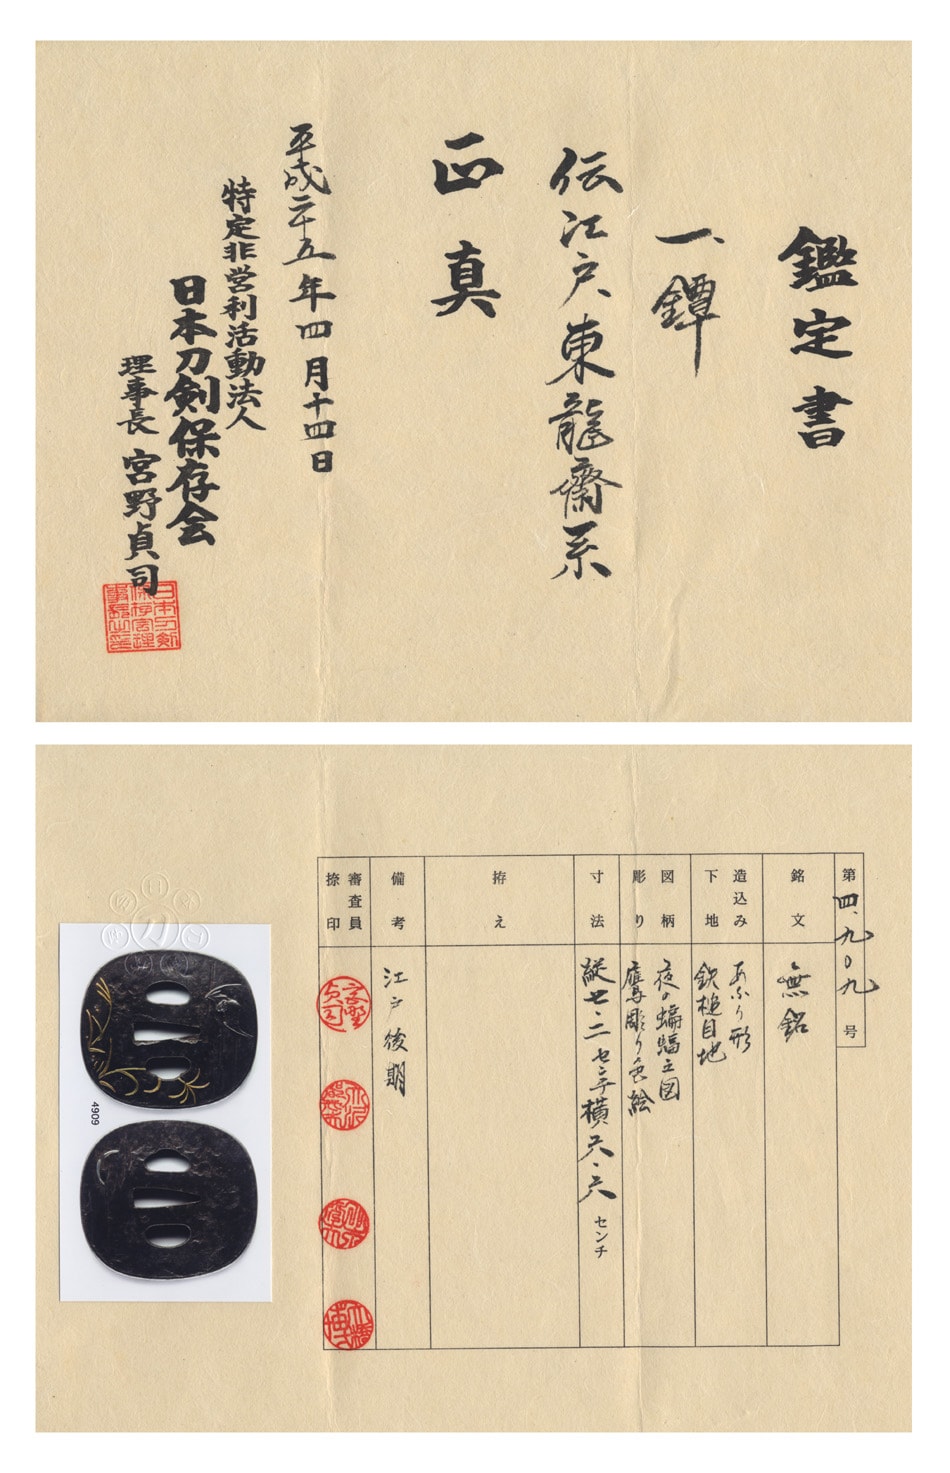 鑑定書
一、鐔
伝江戸東龍齋系
正真
平成二十五年四月十四日
特定非営利活動法人
日本刀剣保存会
理事長 宮野貞司
第四、九〇九号
銘文
無銘
造込み
下地
あふり形
鉄槌目地
図柄
彫り
夜の蝙蝠之図
鷹彫り色絵
寸法
縦七・二センチ横六・六センチ
拵え
備考
江戸後期
審査員
捺印
4909